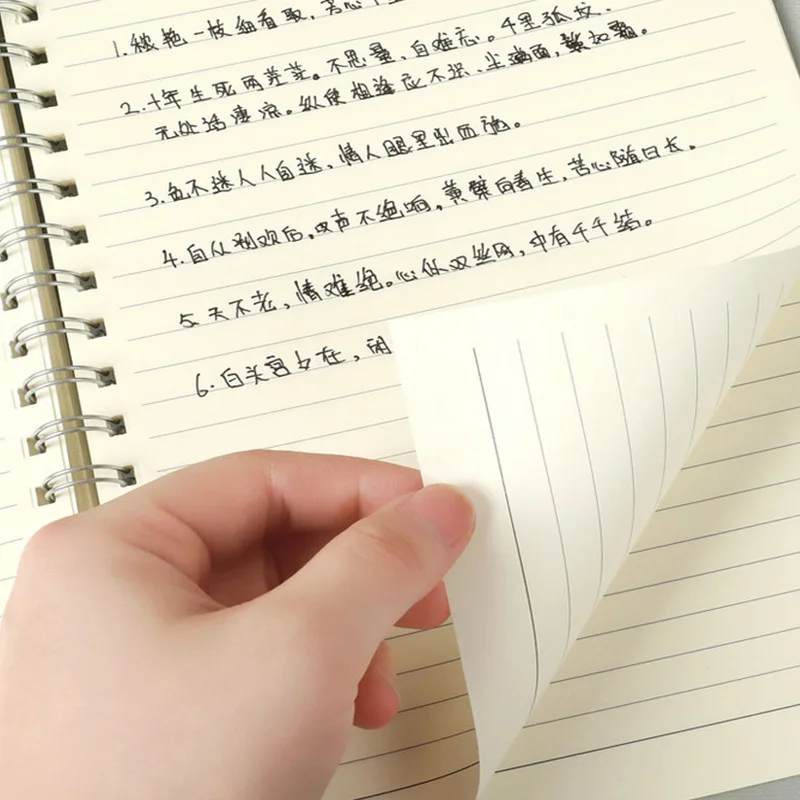 1.秾艳一枝细看取，芳心千
2.十年生死两茫茫。不思量，自难忘。千里孤坟，
无处话凄凉。纵使相逢应不识，尘满面，鬓如霜。
3.色不迷人人自迷，情人眼里出西施。
4.自从别欢后，叹声不绝响，黄檗向春生，苦心随日长。
5.天不老，情难绝。心似双丝网，中有千千结。
6.白头宫女在，闲